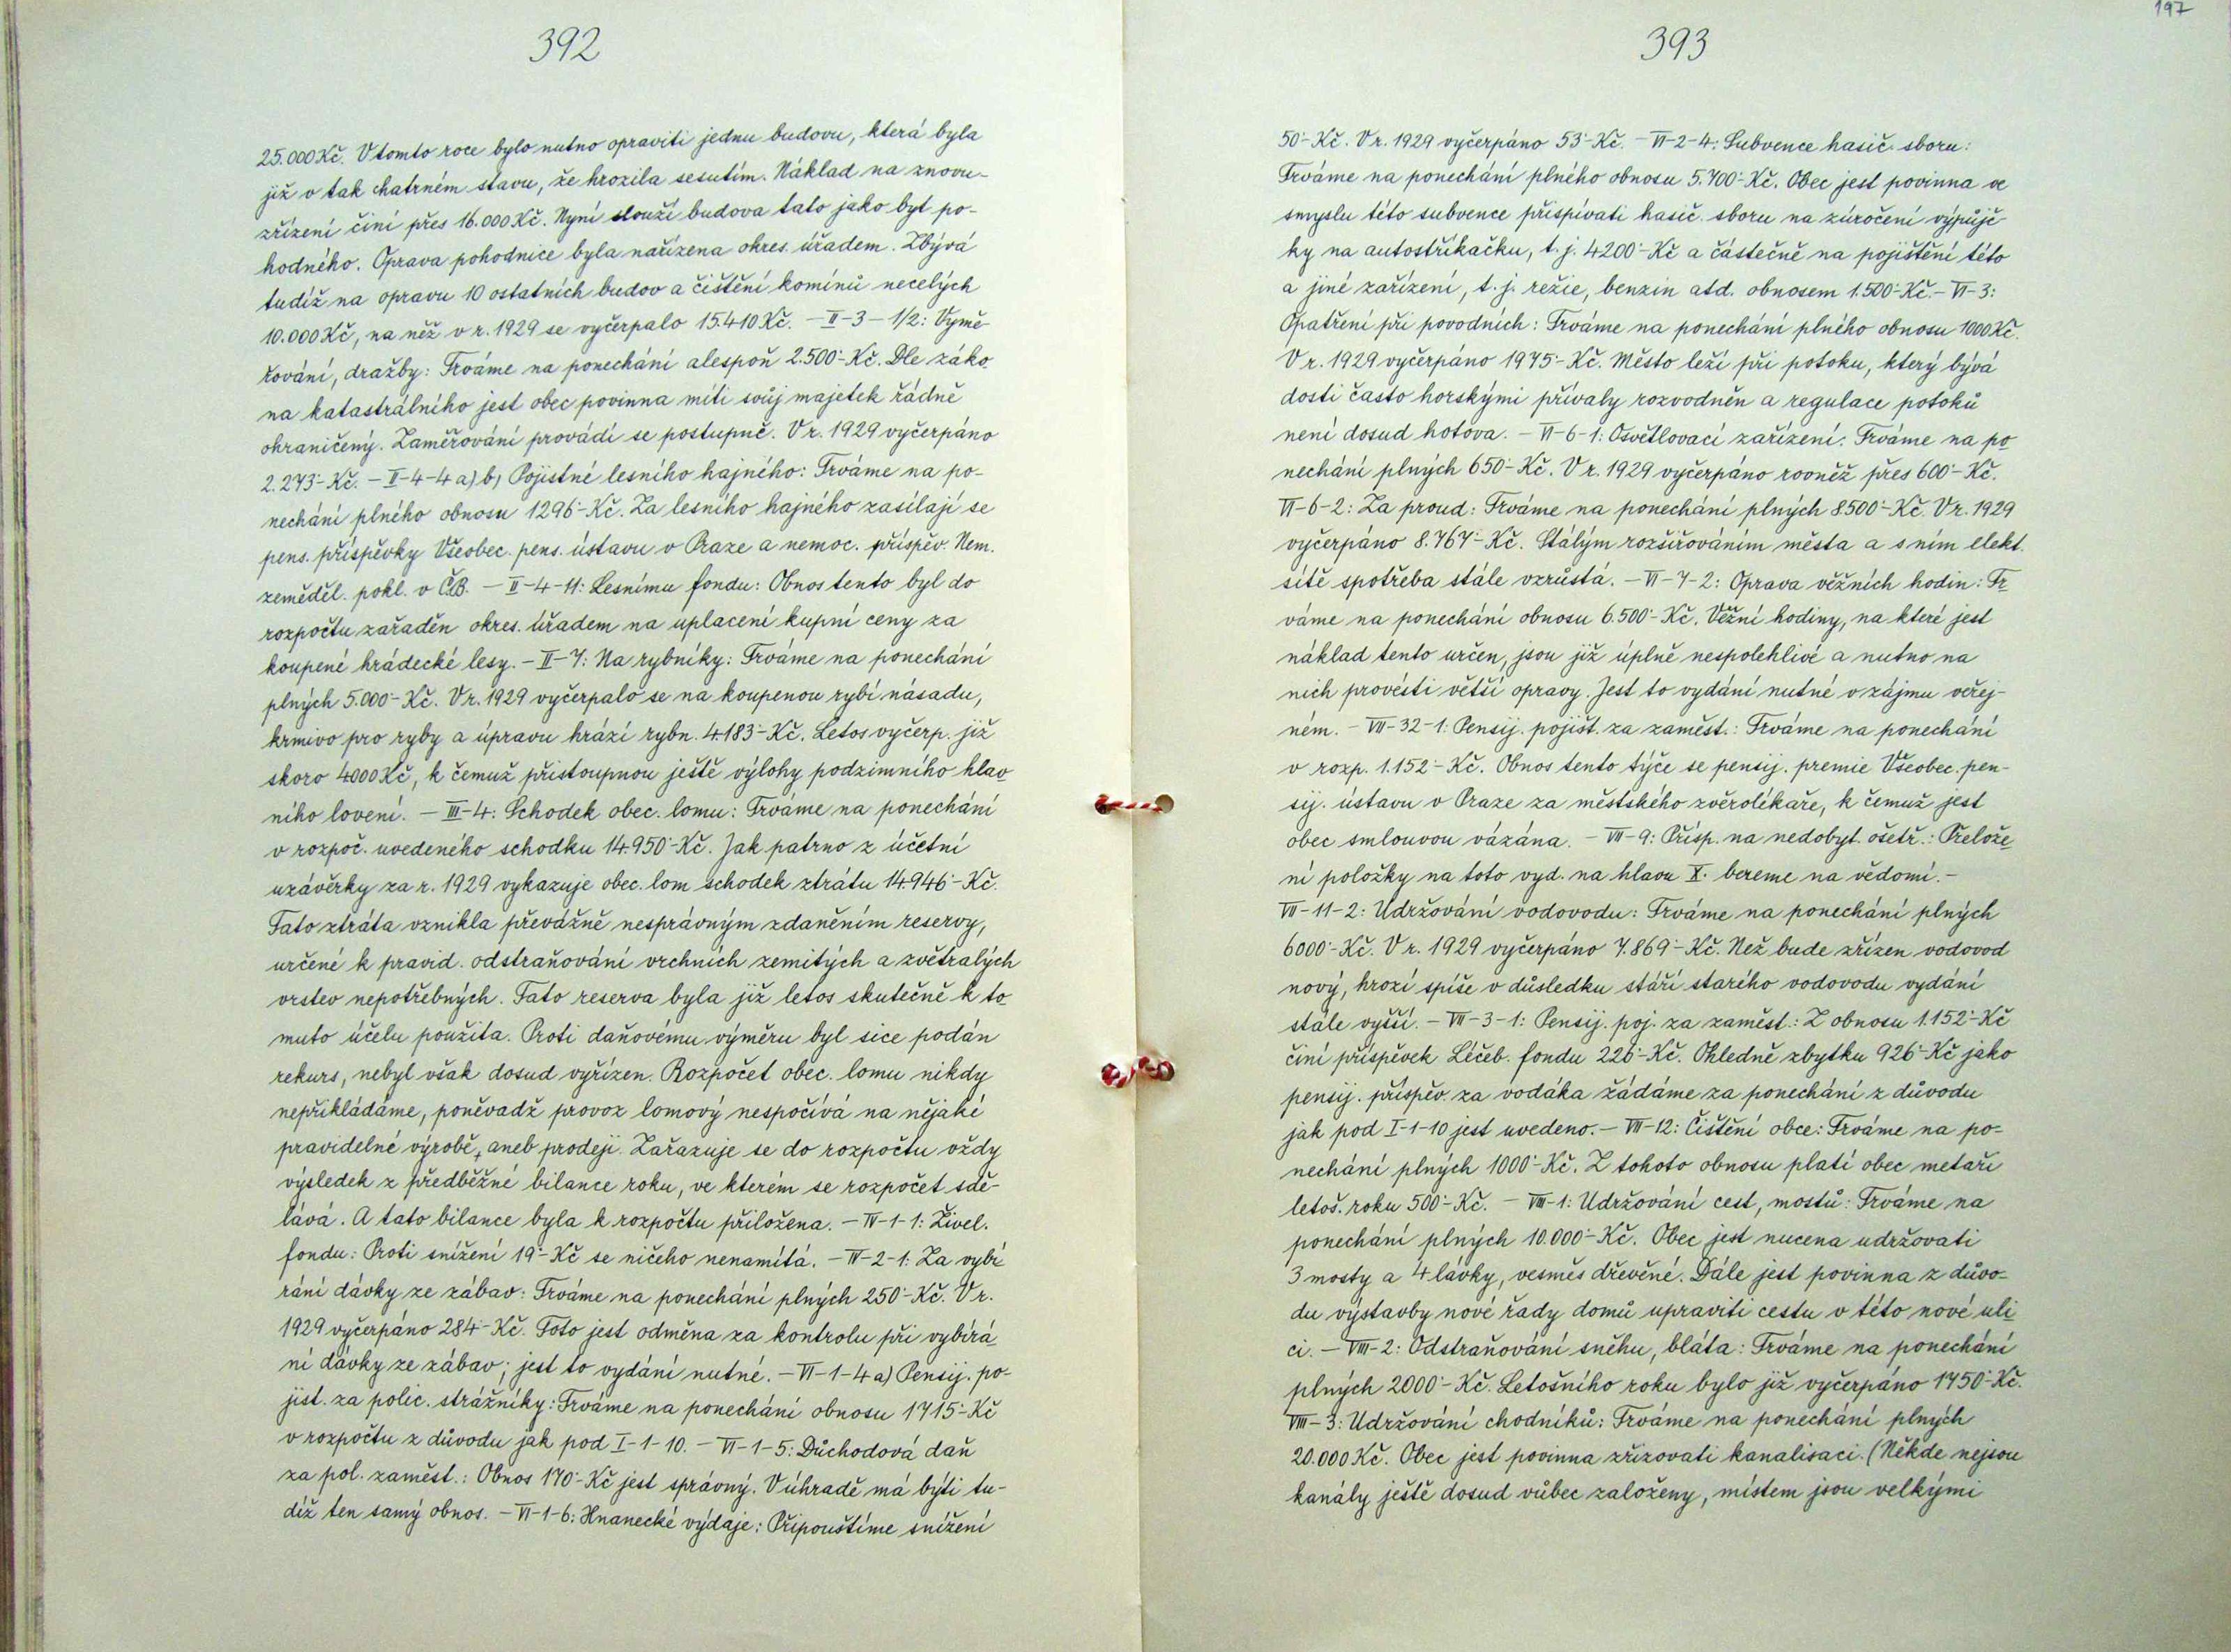 392
25.000 Kč. V tomto roce bylo nutno opraviti jednu budovu, která byla
již v tak chatrném stavu, že hrozila sesutím. Náklad na znovu-
zřízení činí přes 16.000 Kč. Nyní slouží budova tato jako byt po-
hodného. Oprava pohodnice byla nařízena okres. úřadem. Zbývá
tudíž na opravu 10 ostatních budov a čištění komínů necelých
10.000 Kč, na něž v r. 1929 se vyčerpalo 15.410 Kč. – II – 3 – 1/2: Vymě-
řování, dražby: Trváme na ponechání alespoň 2.500·- Kč. Dle záko
na katastrálního jest obec povinna míti svůj majetek řádně
ohraničený. Zaměřování provádí se postupně. V r. 1929 vyčerpáno
2.273·- Kč. – II – 4 – 4 a) b) Pojistné lesního hajného: Trváme na po-
nechání plného obnosu 1296·- Kč. Za lesního hajného zasílají se
pens. příspěvky Všeobec. pens. ústavu v Praze a nemoc. příspěv. Nem.
zeměděl. pokl. v Č.B. – II – 4 – 11: Lesnímu fondu: Obnos tento byl do
rozpočtu zařaděn okres. úřadem na uplacení kupní ceny za
koupené hrádecké lesy. – II – 7: Na rybníky: Trváme na ponechání
plných 5.000·- Kč. V r. 1929 vyčerpalo se na koupenou rybí násadu,
krmivo pro ryby a úpravu hrází rybn. 4.183·- Kč. Letos vyčerp. již
skoro 4000 Kč, k čemuž přistoupnou ještě výlohy podzimního hlav
ního lovení. – III – 4: Schodek obec. lomu: Trváme na ponechání
v rozpoč. uvedeného schodku 14.950·- Kč. Jak patrno z účetní
uzávěrky za r. 1929 vykazuje obec. lom schodek ztrátu 14.946·- Kč.
Tato ztráta vznikla převážně nesprávným zdaněním reservy,
určené k pravid. odstraňování vrchních zemitých a zvětralých
vrstev nepotřebných. Tato reserva byla již letos skutečně k to
muto účelu použita. Proti daňovému výměru byl sice podán
rekurs, nebyl však dosud vyřízen. Rozpočet obec. lomu nikdy
nepřikládáme, poněvadž provoz lomový nespočívá na nějaké
pravidelné výrobě, aneb prodeji. Zařazuje se do rozpočtu vždy
výsledek z předběžné bilance roku, ve kterém se rozpočet sdě-
lává. A tato bilance byla k rozpočtu přiložena. – IV – 1 – 1: Živel.
fondu: Proti snížení 19·- Kč se ničeho nenamítá. – IV – 2 – 1: Za vybí
rání dávky ze zábav: Trváme na ponechání plných 250·- Kč. V r.
1929 vyčerpáno 284·- Kč. Toto jest odměna za kontrolu při vybírá-
ní dávky ze zábav; jest to vydání nutné. – VI – 1 – 4 a) Pensij. po-
jist. za polic. strážníky: Trváme na ponechání obnosu 1715·- Kč
v rozpočtu z důvodu jak pod I – 1 – 10. – VI – 1 – 5: Důchodová daň
za pol. zaměst.: Obnos 170·- Kč jest správný. V úhradě má býti tu-
díž ten samý obnos. – VI – 1 – 6: Hnanecké výdaje: Připouštíme snížení
197
393
50·- Kč. V r. 1929 vyčerpáno 53·- Kč. – VI – 2 – 4: Subvence hasič. sboru:
Trváme na ponechání plného obnosu 5.700·- Kč. Obec jest povinna ve
smyslu této subvence přispívati hasič. sboru na zúročení výpůjč-
ky na autostříkačku, t. j. 4200·- Kč a částečně na pojištění této
a jiné zařízení, t. j. režie, benzin atd. obnosem 1.500·- Kč. – VI – 3:
Opatření při povodních: Trváme na ponechání plného obnosu 1000 Kč.
V r. 1929 vyčerpáno 1975·- Kč. Město leží při potoku, který bývá
dosti často horskými přívaly rozvodněn a regulace potoků
není dosud hotova. – VI – 6 – 1: Osvětlovací zařízení: Trváme na po
nechání plných 650·- Kč. V r. 1929 vyčerpáno rovněž přes 600·- Kč.
VI – 6 – 2: Za proud: Trváme na ponechání plných 8500·- Kč. V r. 1929
vyčerpáno 8.767·- Kč. Stálým rozšiřováním města a s ním elekt.
sítě spotřeba stále vzrůstá. – VI – 7 – 2: Oprava věžních hodin: Tr
váme na ponechání obnosu 6.500·- Kč. Věžní hodiny, na které jest
náklad tento určen, jsou již úplně nespolehlivé a nutno na
nich provésti větší opravy. Jest to vydání nutné v zájmu veřej-
ném. – VII – 32 – 1: Pensij. pojišt. za zaměst.: Trváme na ponechání
v rozp. 1.152·- Kč. Obnos tento týče se pensij. premie Všeobec. pen-
sij. ústavu v Praze za městského zvěrolékaře, k čemuž jest
obec smlouvou vázána. – VII – 9: Přísp. na nedobyt. ošetř.: Přelože
ní položky na toto vyd. na hlavu X. bereme na vědomí. –
VII – 11 – 2: Udržování vodovodu: Trváme na ponechání plných
6000·- Kč. V r. 1929 vyčerpáno 7.869·- Kč. Než bude zřízen vodovod
nový, hrozí spíše v důsledku stáří starého vodovodu vydání
stále vyšší. – VII – 3 – 1: Pensij. poj. za zaměst.: Z obnosu 1.152·- Kč
činí příspěvek Léčeb. fondu 226·- Kč. Ohledně zbytku 926·- Kč jako
pensij. příspěv. za vodáka žádáme za ponechání z důvodu
jak pod I – 1 – 10 jest uvedeno. – VII – 12: Čištění obce: Trváme na po-
nechání plných 1000·- Kč. Z tohoto obnosu platí obec metaři
letoš. roku 500·- Kč. – VIII – 1: Udržování cest, mostů: Trváme na
ponechání plných 10.000·- Kč. Obec jest nucena udržovati
3 mosty a 4 lávky, vesměs dřevěné. Dále jest povinna z důvo-
du výstavby nové řady domů upraviti cestu v této nové uli
ci. – VIII – 2: Odstraňování sněhu, bláta: Trváme na ponechání
plných 2000·- Kč. Letošního roku bylo již vyčerpáno 1750·- Kč.
VIII – 3: Udržování chodníků: Trváme na ponechání plných
20.000 Kč. Obec jest povinna zřizovati kanalisaci. (Někde nejsou
kanály ještě dosud vůbec založeny, místem jsou velkými